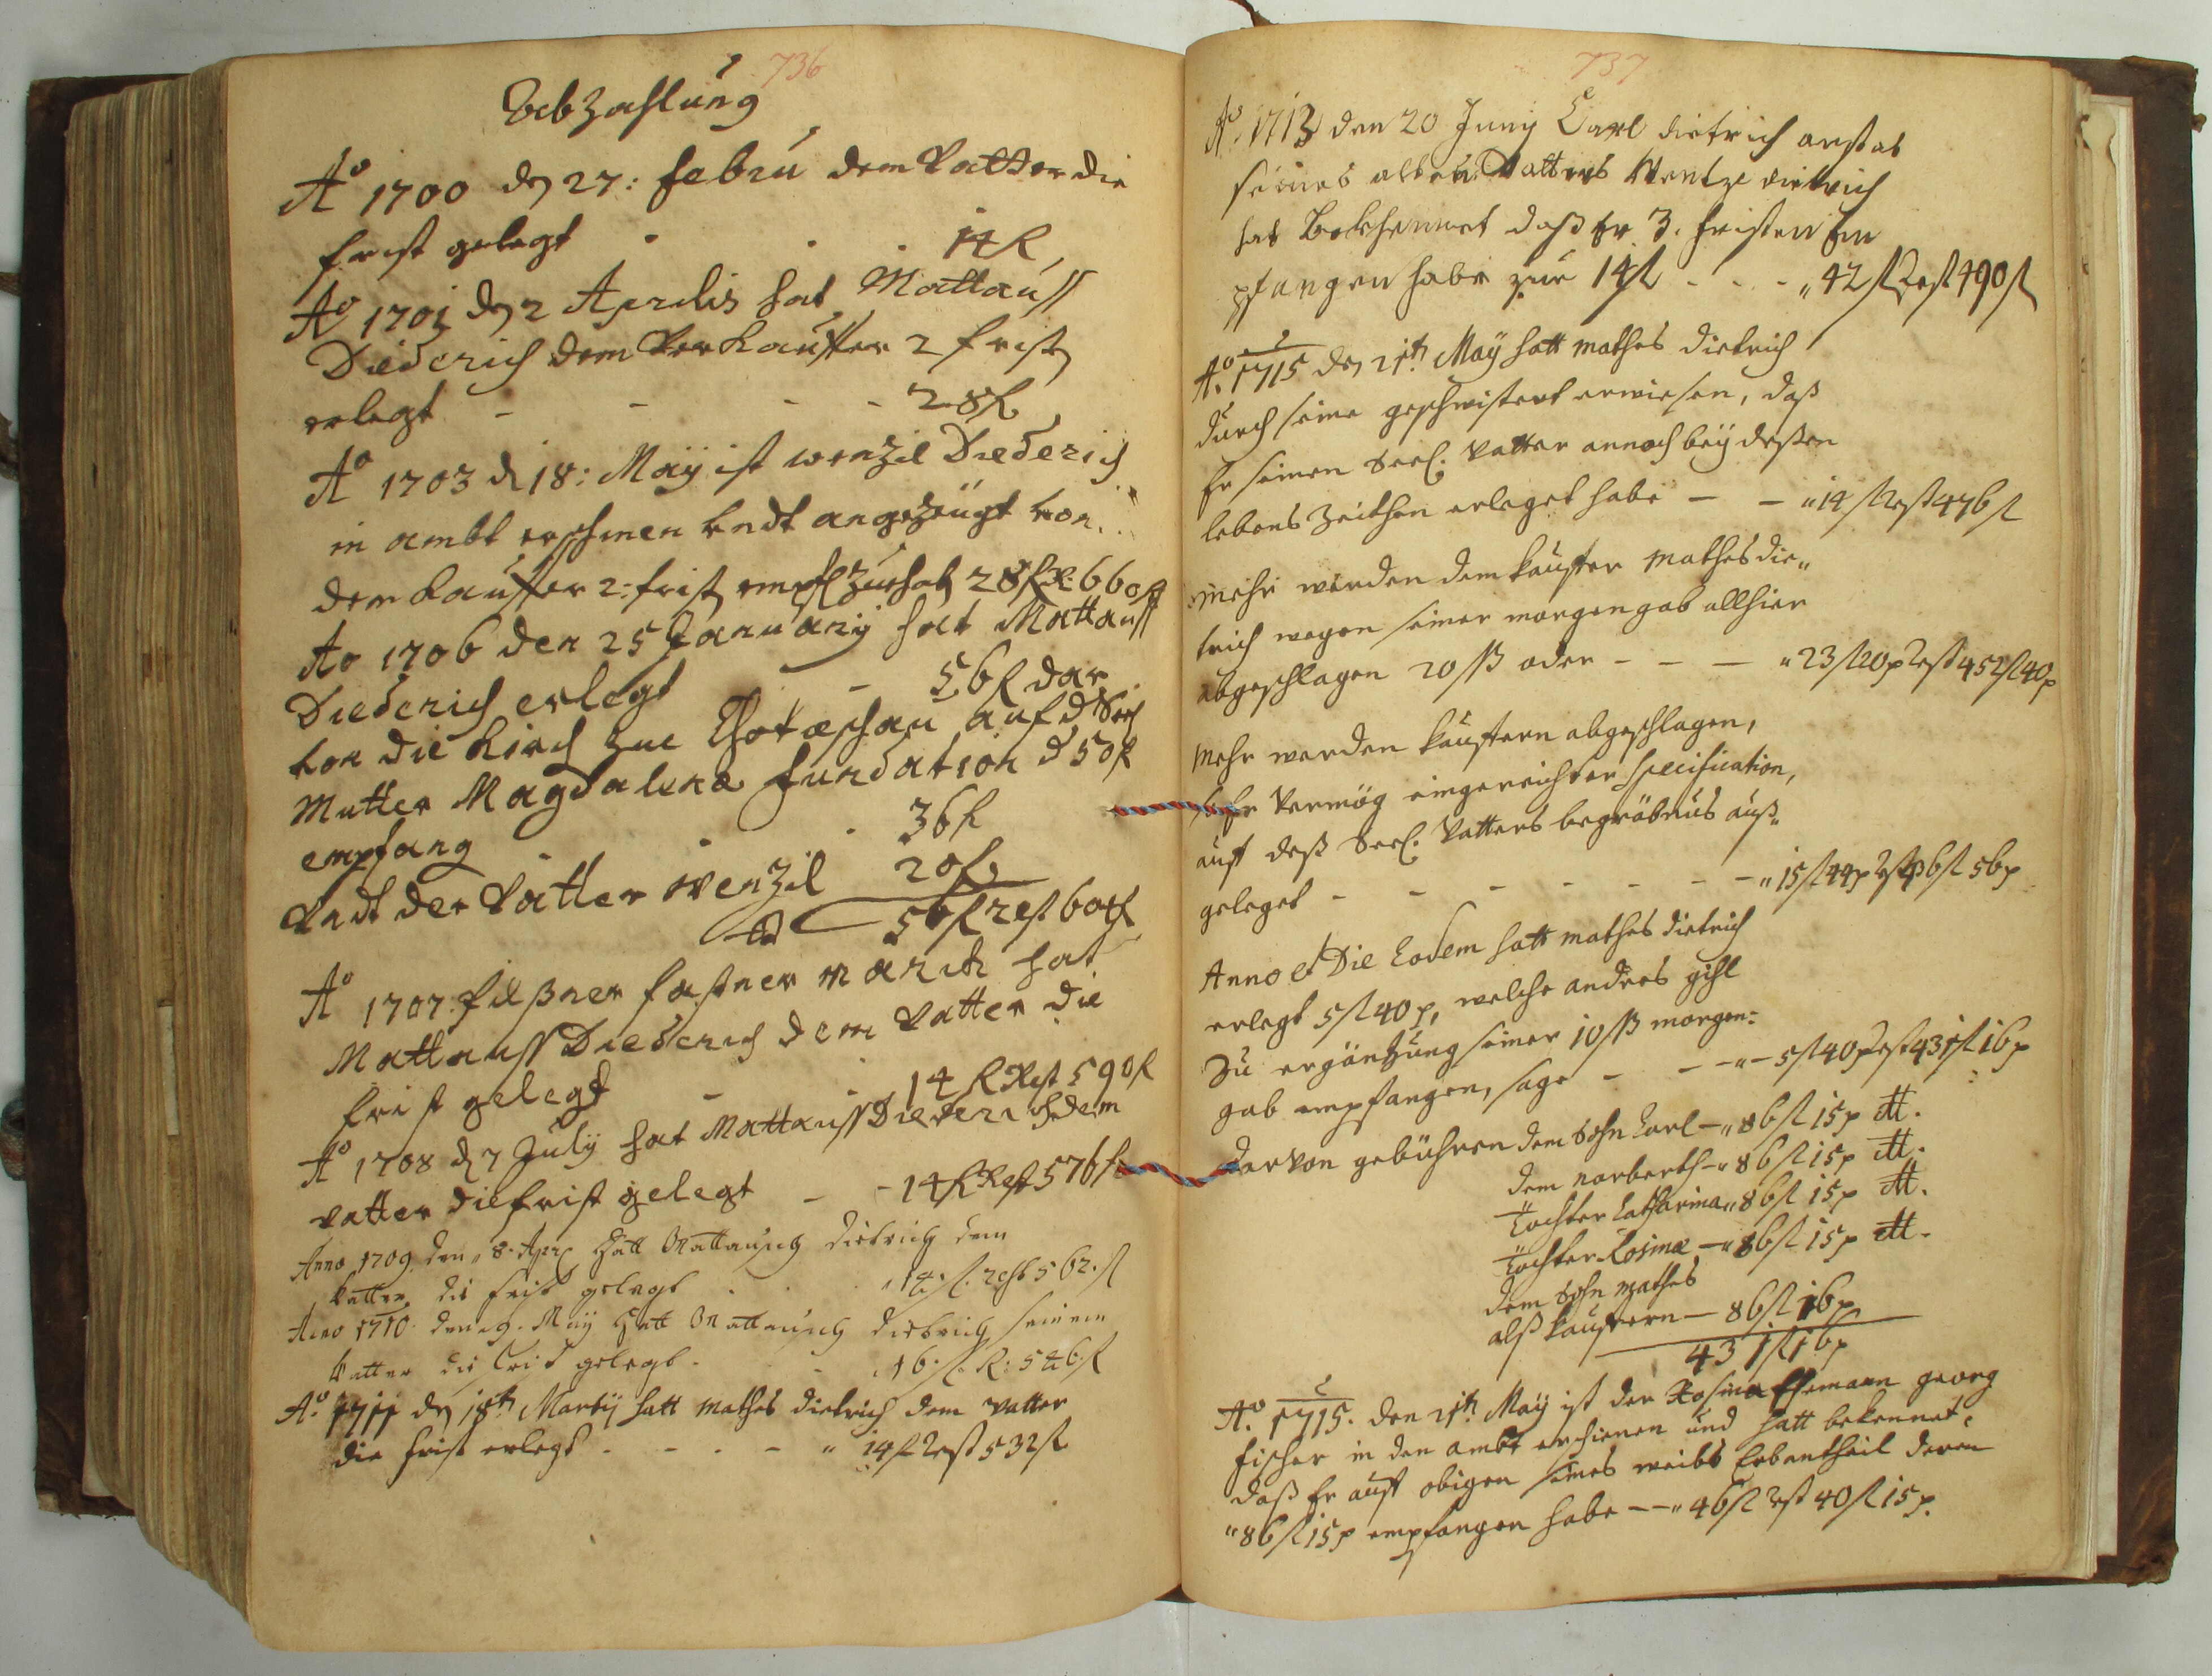 736
Abzahlung
Ao 1700 den 27: Febru dem Vatter die
frist gelegt - - 14 fl
Ao 1701 den 2 Aprilis hat Mattauss
Diederich dem Verkauffer 2 frist
erlegt - - - - 28 fl
Ao 1703 d 18: May ist wenzil Diederich
in ambt erschinen undt angezeügt von
dem kauffer 2: frist empf zu hab 28 fl R: 660 fl
Ao 1706 den 25 January hat Mattauss
Diederich erlegt - - 56 fl dar
von die Kirch zue Chotæschau auf d
Mutter Magdalena fundation d 50 fl
empfang - - - 36 fl
Undt der Vatter Wenzil 20 fl
56 fl rest 604 fl
Ao 1707 fastner march hat
Mattauss Diederich dem Vatter die
frist gelegt - - 14 fl Rest 590 fl
Ao 1708 d 7 July hat Mattauss Diederich dem
vatter die frist gelegt - - 14 fl Rest 576 fl
Anno 1709 den 8. Apr Hatt Mattausch Dietrich dem
Vatter die frist gelegt - - 14. fl. rest 562. fl
Anno 1710 den 9. May Hatt Mattausch Dietrich seinem
Vatter die frist gelegt - - 16. fl. R: 546. fl
Ao. 1711 den 18tn Marty hatt mathes dietrich dem Vatter
die frist erlegt - - - - " 14 fl Rest 532 fl
737
Ao. 1713 den 20 Juny Carl dietrich anstat
seines alten Vatters Wentze dietrich
hat Bekhennet daß Er 3. fristen Em
pfangen habe zue 14 fl - - - " 42 fl Rest 490 fl
Ao. 1715 den 21tn. May hatt mathes dietrich
durch seine geschwistert erwiesen, daß
Er seinen Seel. Vatter annoch bey deßen
lebens Zeithen erleget habe - - " 14 fl Rest 476 fl
mehr werden dem kauffer mathes die„
trich wegen seiner morgengab allhier
abgeschlagen 20 ß oder - - - " 23 fl 20 p Rest 452 fl 40 p
Mehr werden kauffern abgeschlagen,
so Er Vermög eingereichter Specification,
auff deß Seel. Vatters begräbnus auß„
geleget - - - - - - - " 15 fl 44 p Rest 436 fl 56 p
Anno et Die Eodem hatt mathes dietrich
erlegt 5 fl 40 p, welche andres gihl
Zu ergäntzung seiner 10 ß morgen=
gab empfangen, sage - - - " - 5 fl 40 p Rest 431 fl 16 p
darvon gebühren dem Sohn Carl - " 86 fl 15 p
dem norberth - " 86 fl 15 p
Tochter Catharina " 86 fl 15 p
Tochter Rosinæ - " 86 fl 15 p
dem Sohn Mathes
alß kauffern - 86 fl 16 p
431 fl 16 p
Ao. 1715. den 21tn. May ist der Rosina Ehemann georg
fischer in den ambt erschienen und hatt bekennet,
daß Er auff obigen seines weibs Erbantheil deren
" 86 fl 15 p empfangen habe - - " 46 fl Rst 40 fl 15 p.